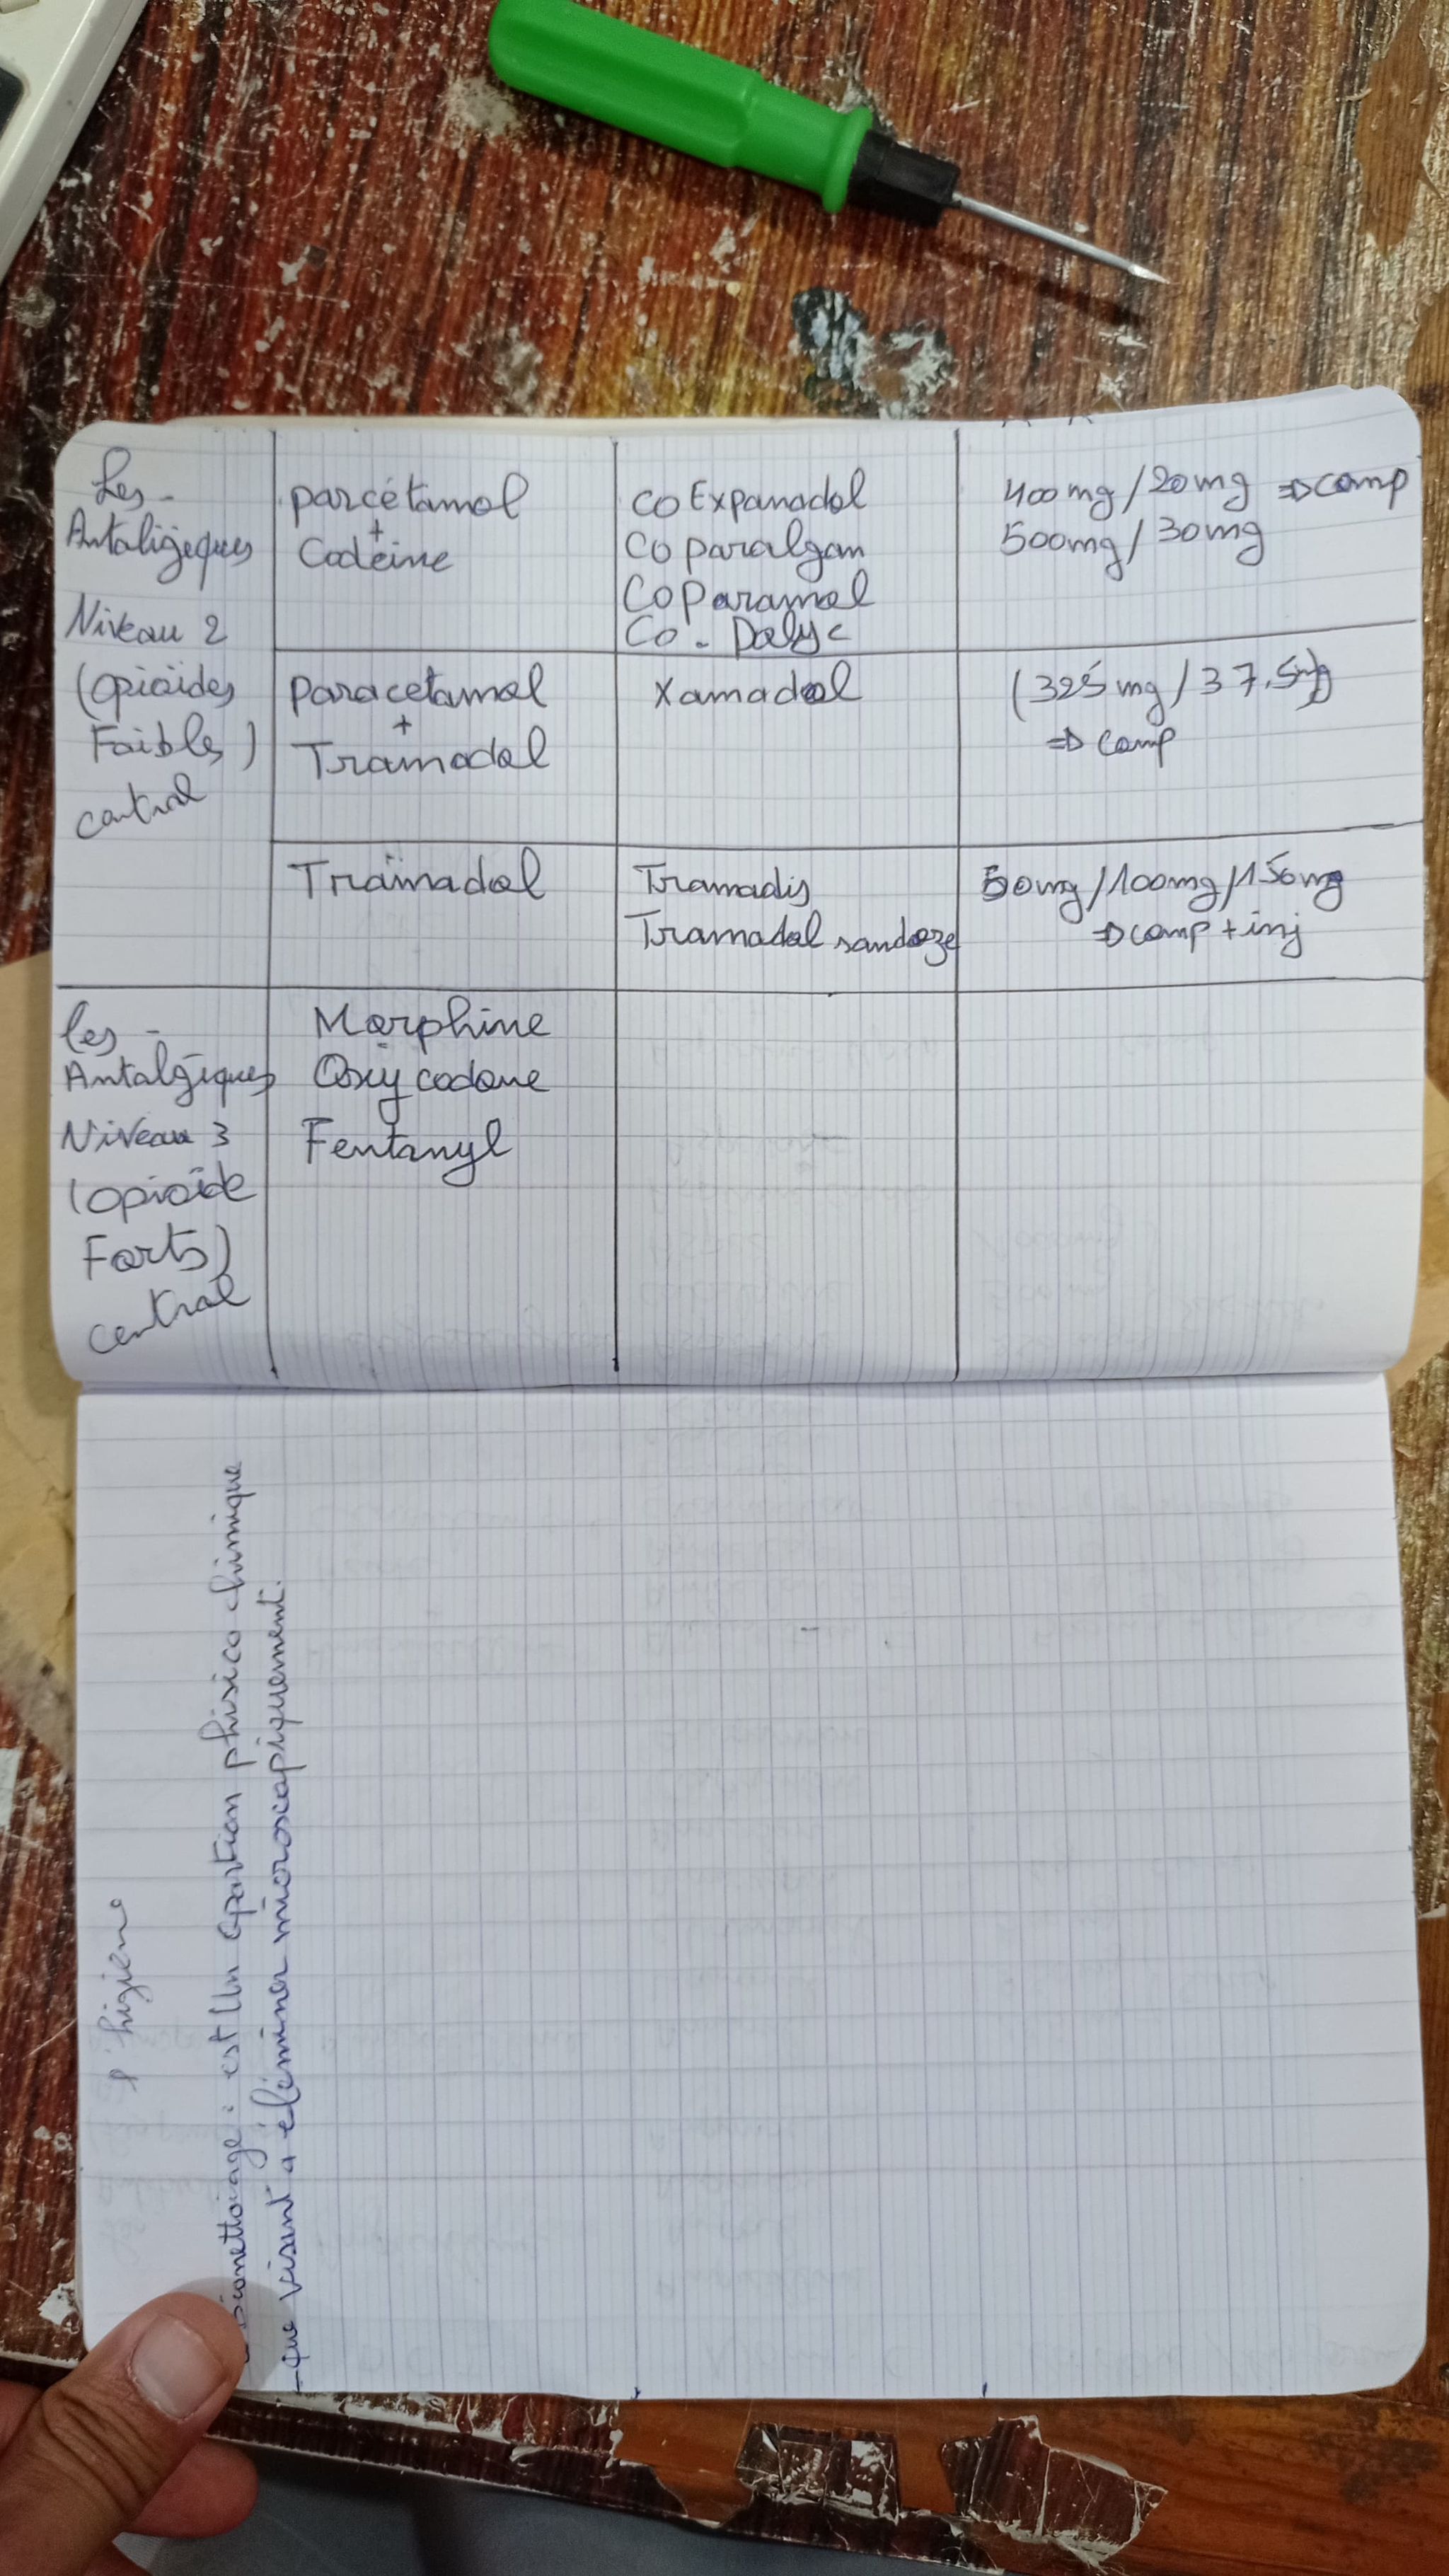 Les -
Antaligeques
Niveau 2
(opioides
Faibles)
central
parcétamol
+
Codeine
CO Expanadol
CO paralgan
CO Paramol
Co - Dalyc
400mg/20mg => comp
500mg/30mg
paracetamol
+
Tramadol
Xamadol
(325 mg/37,5mg)
=> comp
Tramadol
Tramadis
Tramadol sandoze
50mg/100mg/150mg
=> comp + inj
les -
Antalgeques
Niveau 3
(opioide
Forts)
central
Morphine
Oxycodone
Fentanyl
l'higiene
Bionettoiage : est Un opartion phisico chimique
que visant a éléminer microscopiquement.